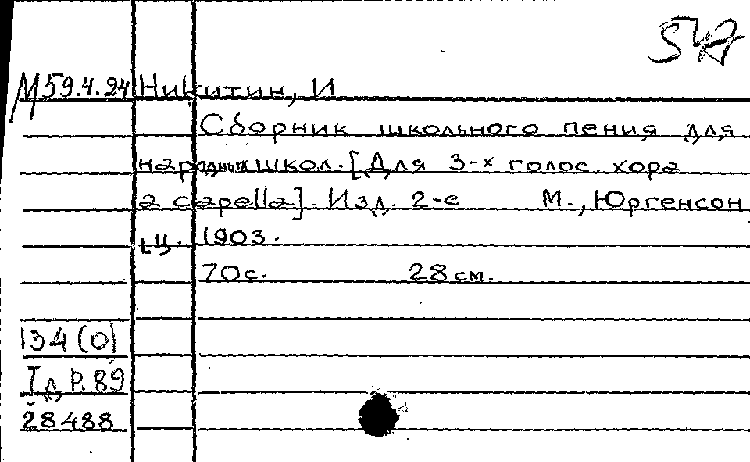 М59.4.24 Никитин, И
Сборник школьного пения для
народных школ. [Для 3-х голос. хора
a capella]. Изд. 2-е М., Юргенсон
ц. 1903.
70с. 28см.
134(0)
Р.89
28488